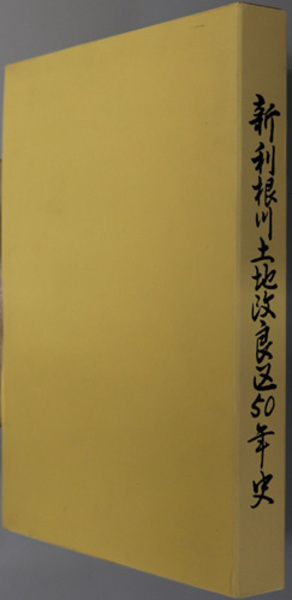 新利根川土地改良区50年史